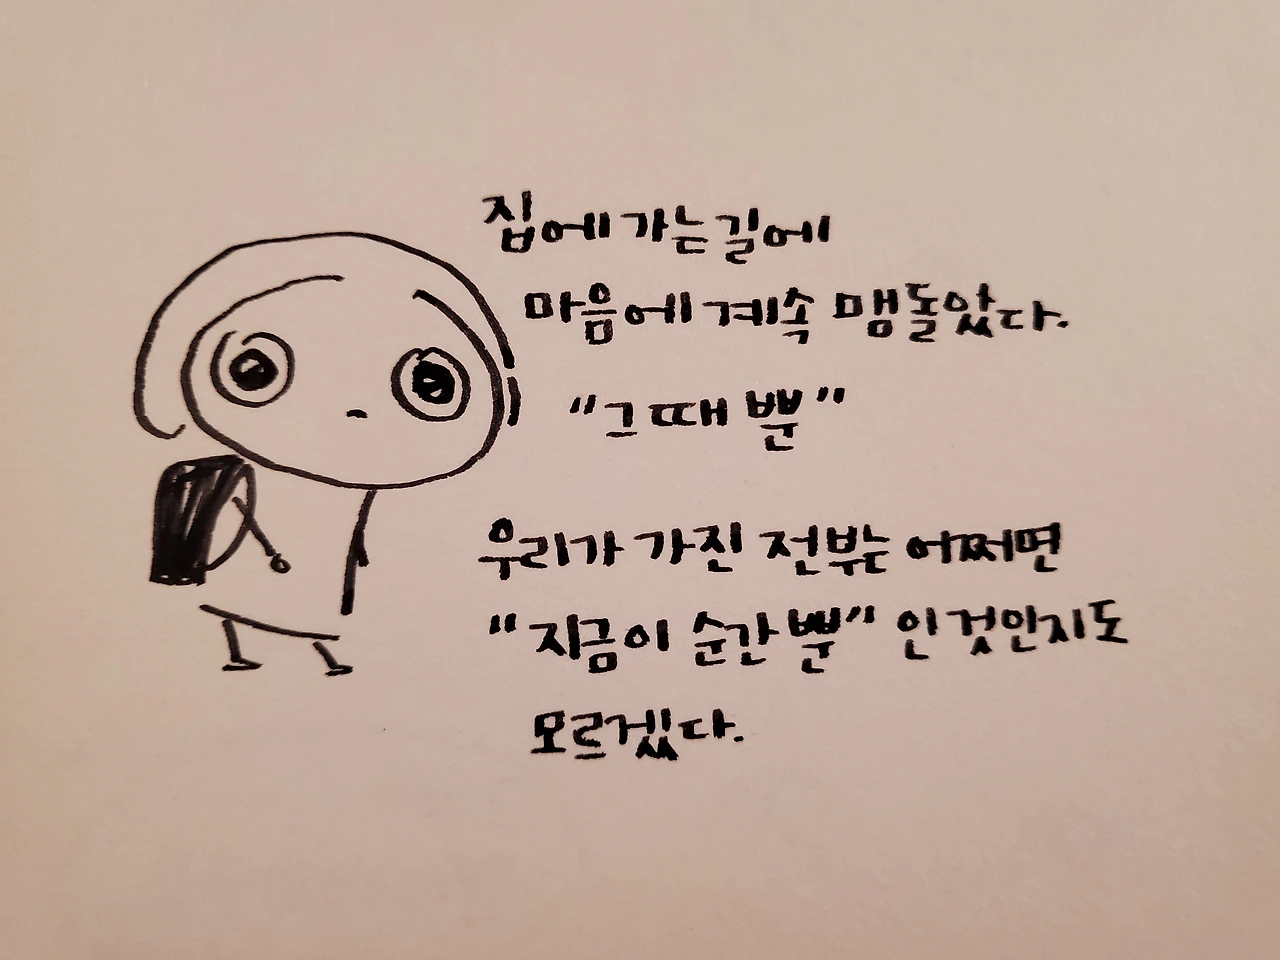 집에 가는 길에
마음에 계속 맴돌았다.
"그 때 뿐"
우리가 가진 전부는 어쩌면
"지금 이 순간 뿐" 인 것인지도
모르겠다.